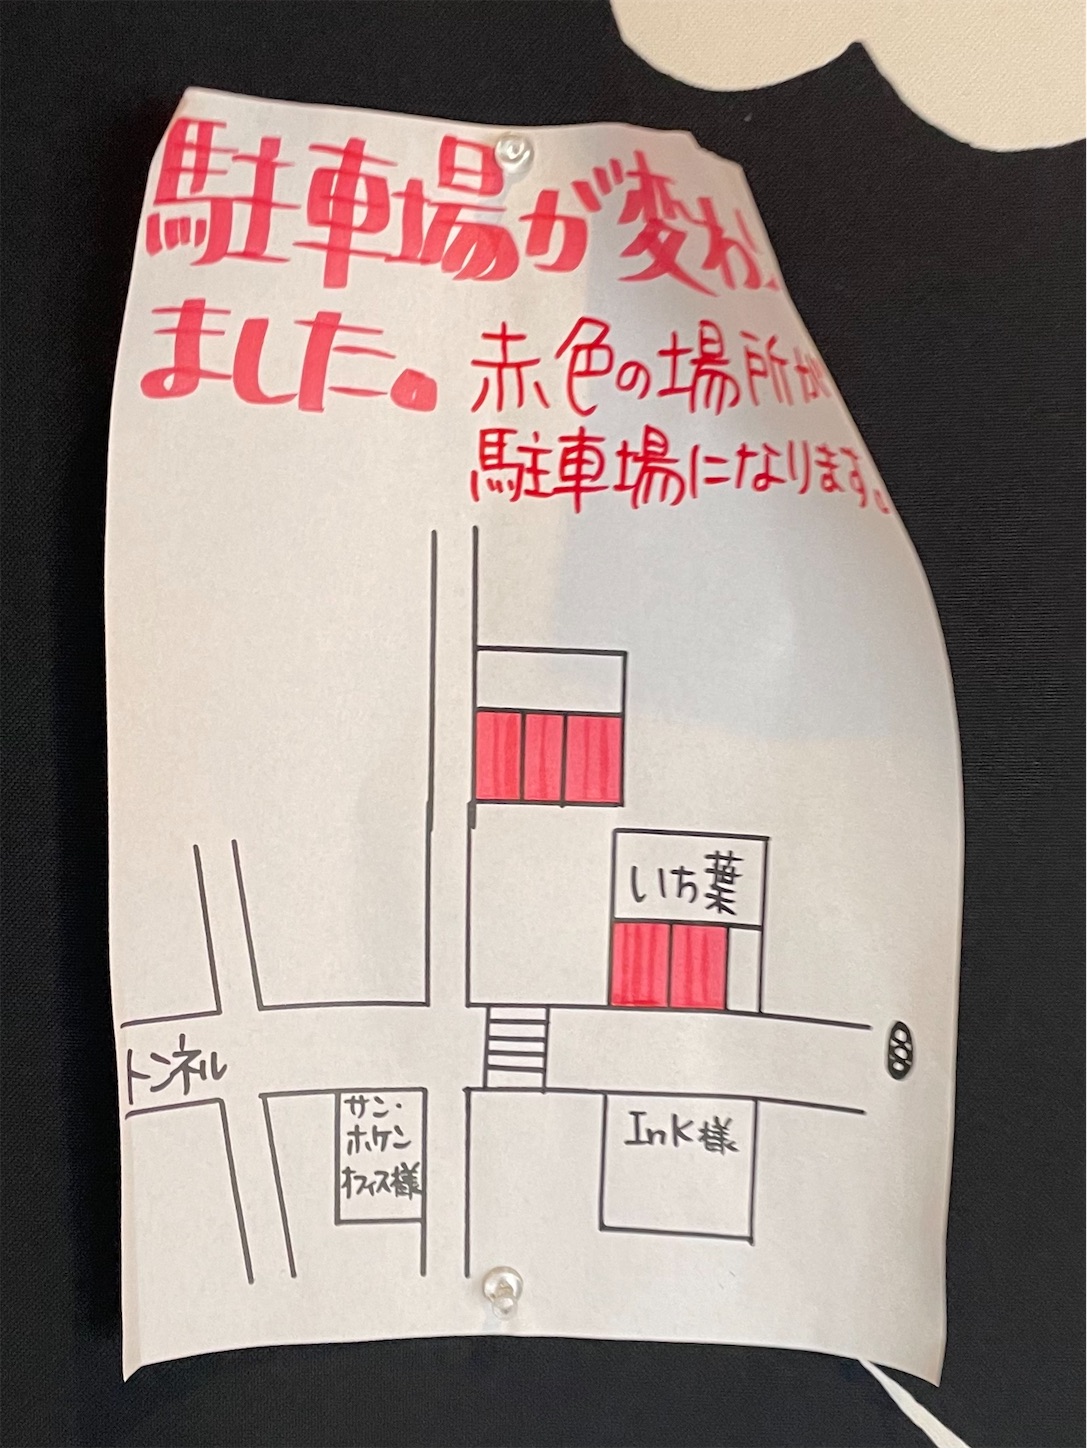 駐車場が変わり
ました。
赤色の場所が
駐車場になります。
いち葉
トンネル
サン・
ホケン
オフィス様
Ink様